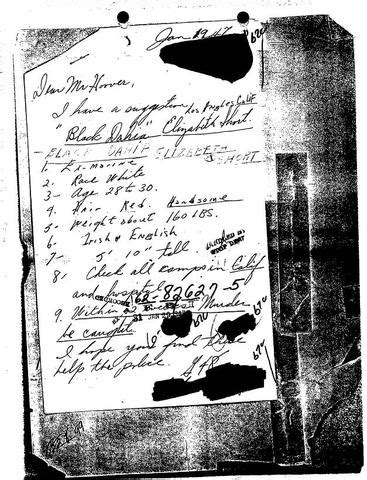 Jan 19
Dear Mr Hoover,
I have a suggestion Los Angeles Calif
"Black Dahlia" Elizabeth Short.
BLACK DAHLIA ELIZEBETH SHORT
1. Ex-marine
2. Race White
3- Age 28 to 30.
4. Hair Red. Handsome
5- Weight about 160 lbs.
6. Irish & English
7- 5' 10" tall
8, Check all camps in Calif
and hospital
62-82627-5
9. Within 2 Murder
be caught.
I hope you find
help the police.